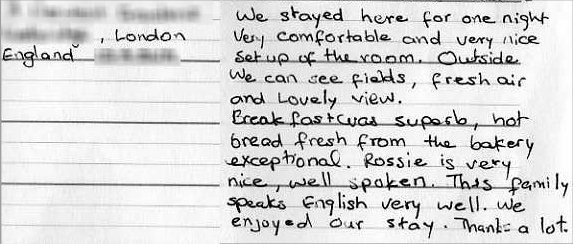 , London
England
We stayed here for one night
Very comfortable and very nice
Set up of the room. Outside
We can see fields, fresh air
and Lovely view.
Breakfast was superb, hot
bread fresh from the bakery
exceptional. Rossie is very
nice, well spoken. This family
speaks English very well. We
enjoyed our stay. Thanks a lot.